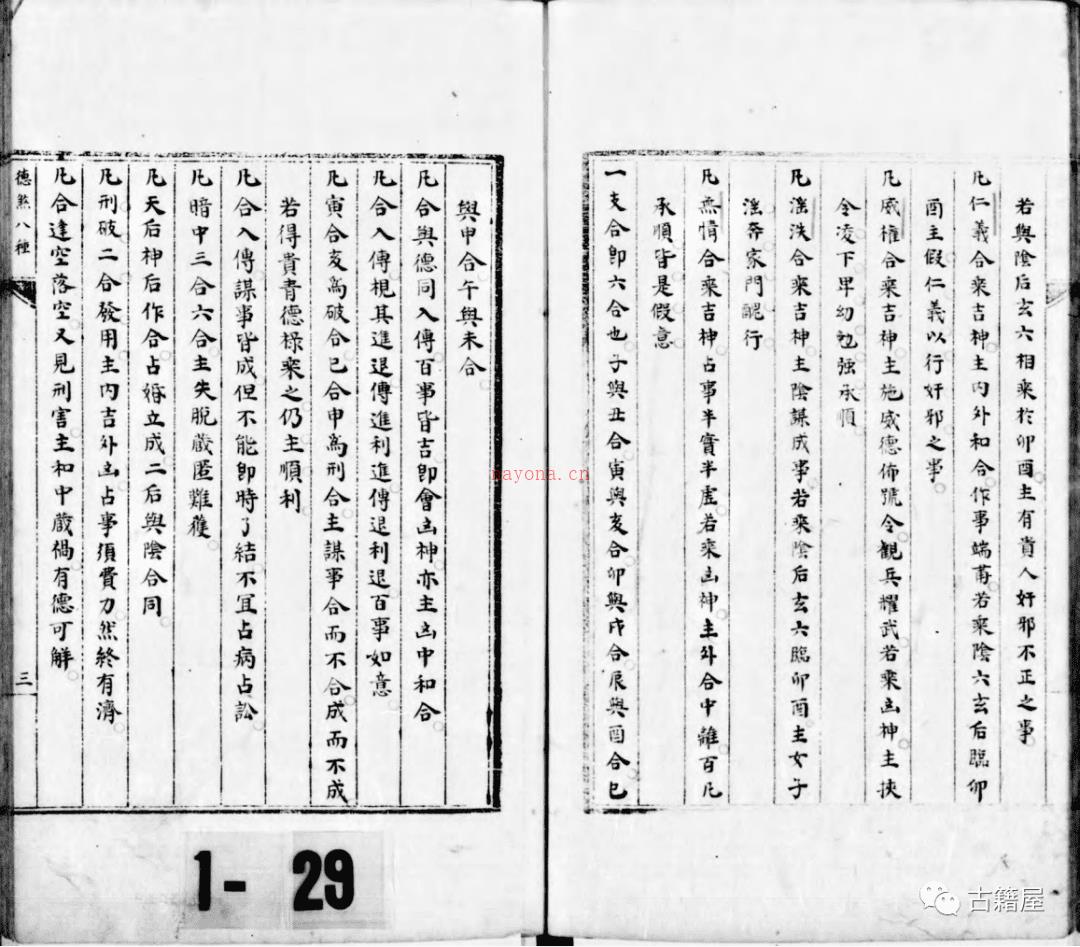 若與陰后玄六相乘於卯酉主有貴人奸邪不正之事
凡仁義合乘吉神主內外和合作事端莆若乘陰六玄后臨卯
酉主假仁義以行奸邪之事
凡威權合乘吉神主施威德佈號令觀兵耀武若乘凶神主挾
令凌下卑幼勉強承順
凡滛泆合乘吉神主陰謀成事若乘陰后玄六臨卯酉主女子
滛奔家門醜行
凡無情合乘吉神占事半實半虛若乘凶神主外合中離百凡
承順皆是假意
一支合卽六合也子與丑合寅與亥合卯與戌合辰與酉合巳
與申合午與未合
凡合與德同入傳百事皆吉卽會凶神亦主凶中和合
凡合入傳視其進退傳進利進傳退利退百事如意
凡寅合亥為破合巳合申為刑合主謀事合而不合成而不成
若得貴青德祿乘之仍主順利
凡合入傳謀事皆成但不能卽時了結不宜占病占訟
凡暗中三合六合主失脫藏匿難獲
凡天后神后作合占婚立成二后與陰合同
凡刑破二合發用主內吉外凶占事須費力然終有濟
凡合逢空落空又見刑害主和中藏禍有德可解
德煞八種
三
nayona.cn
1-29
古籍屋